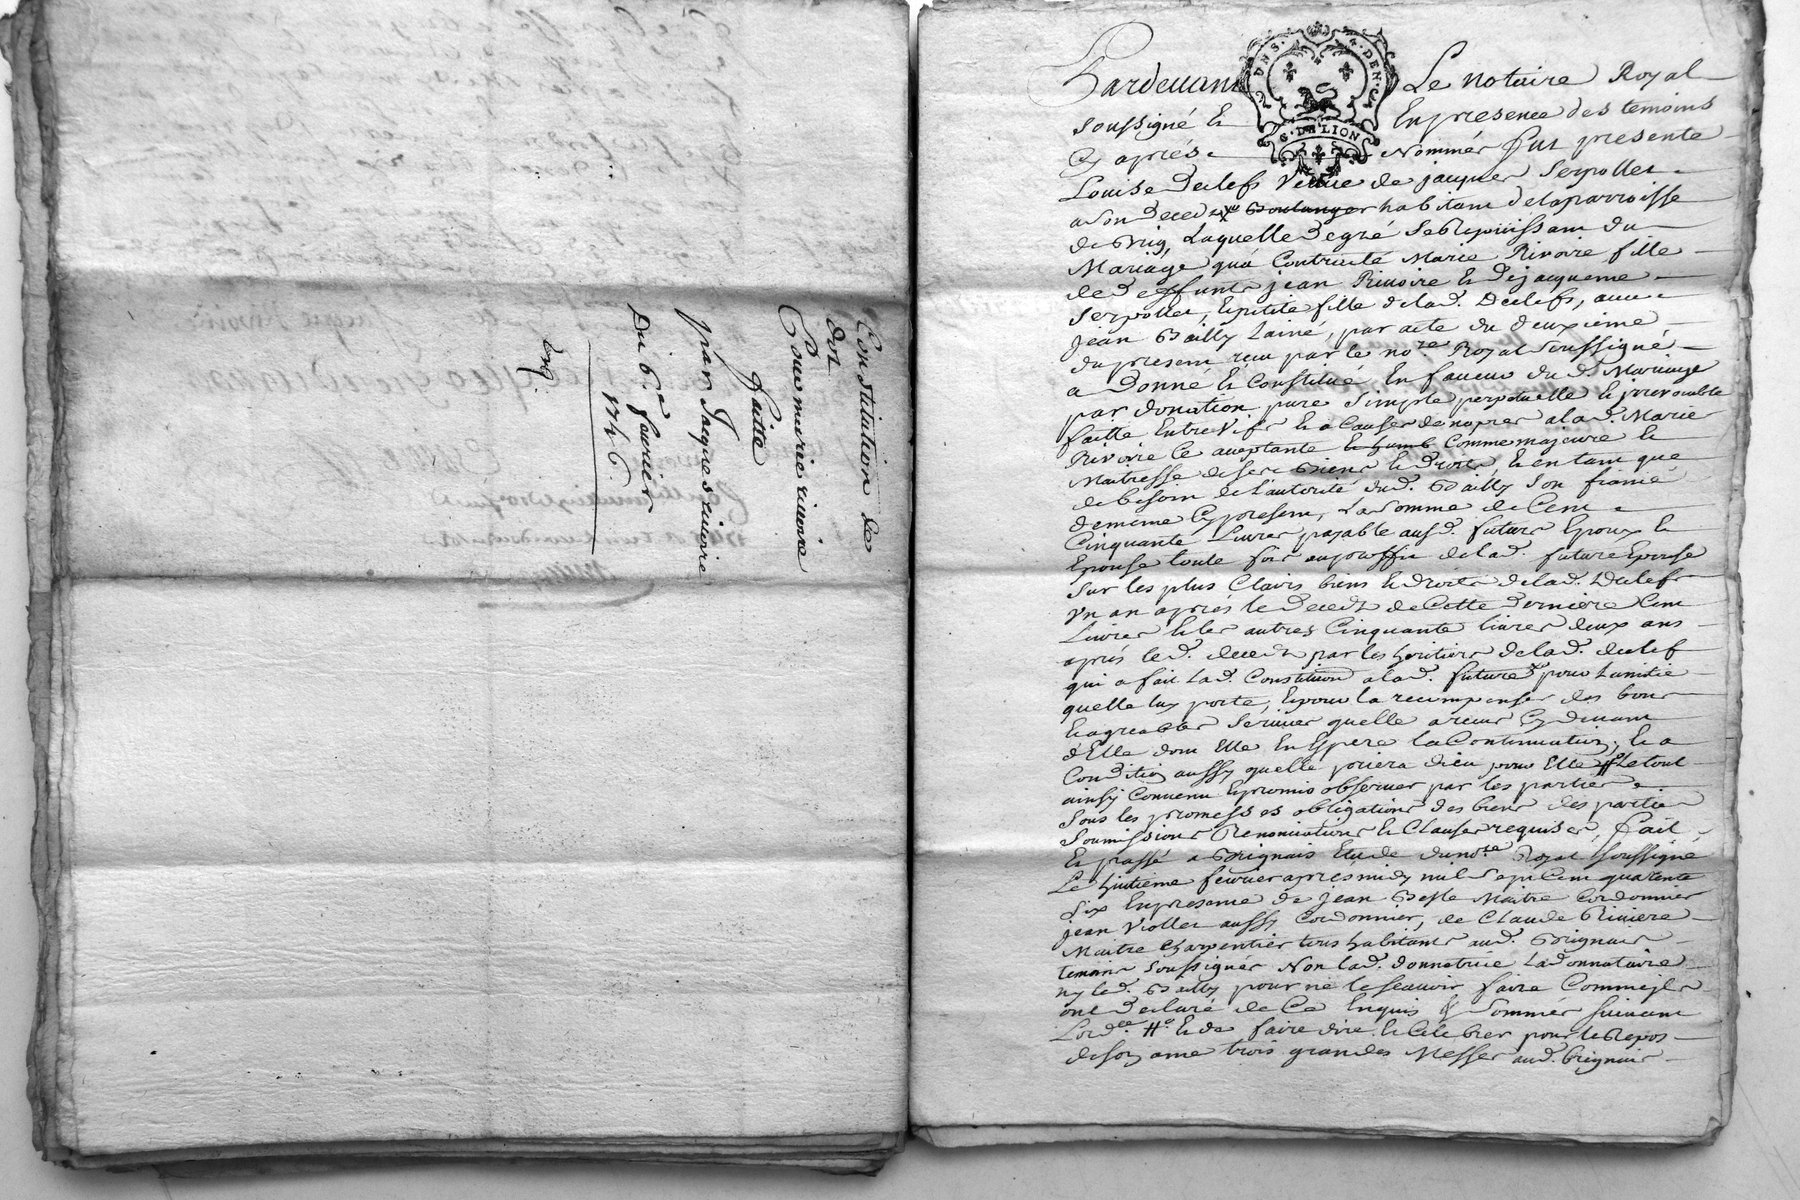 Constitution de
dot
Pour marie rivoire
faitte
par Jacques rivoire
Du 6.e fevrier
1746.
Pardevant Le notaire Royal
soussigné Et En presence des temoins
Cy aprés Nommés fut presente
Louise Declefs Veuve de jacques Serpollet
a son deced habitant de la parroisse
de Brig, Laquelle de gré se Rejouissant du
Mariage qu'a Contracté Marie Rivoire fille
de deffunts jean Rivoire Et de jacqueme
Serpollet, Et petite fille de lad. Declefs, avec
jean Bailly L'ainé, par acte du deuxieme
du present reçu par le no.re Royal soussigné
a Donné Et Constitué En faveur dud. Mariage
par donation pure simple perpetuelle Et jrrevocable
faitte Entre Vifs Et a Cause de nopces a lad. Marie
Rivoire Ce acceptante Comme majeure Et
Maitresse de ses Biens Et Droits, Et en tant que
de besoin de L'autorité dud. Bailly son fiancé
de meme Cy present, La somme de Cent
Cinquante Livres payable ausd. futurs Epoux Et
Epouse toute fois au proffit de lad. future Epouse
sur les plus Clairs biens Et droits de lad. Declefs
Un an aprés le decedz de Cette derniere Cent
Livres Et les autres Cinquante livres deux ans
aprés led. decedz par les heritiers de lad. declef
qui a fait Lad. Constitution a lad. future pour L'amitié
quelle luy porte, Et pour la recompenser des bons
Et agreables services quelle a recus Cy devant
d'Elle dont Elle En Espere la Continuation, Et a
Condition aussy quelle priera dieu pour Elle # Le tout
ainsy Convenu Et promis observer par les parties
sous les promesses obligations des biens des parties
soumissions Renonciations Et Clauses requises, fait
Et passé a Brignais Etude dud no.re Royal soussigné
Le huitieme fevrier apres midy mil sept Cent quarente
six En presence de jean Beste Maitre Cordonnier
jean Viollet aussy Cordonnier, de Claude Riviere
Maitre Charpentier tous habitants aud. Brignais
temoins soussignés Non Lad. donnatrice La donnataire
ny led. Bailly pour ne le sçauoir faire Comme jls
ont declaré de Ce Enquis & sommés suivant
L'ord.ce # Et de faire dire Et Celebrer pour le Repos
de son ame trois grandes Messes aud. brignais